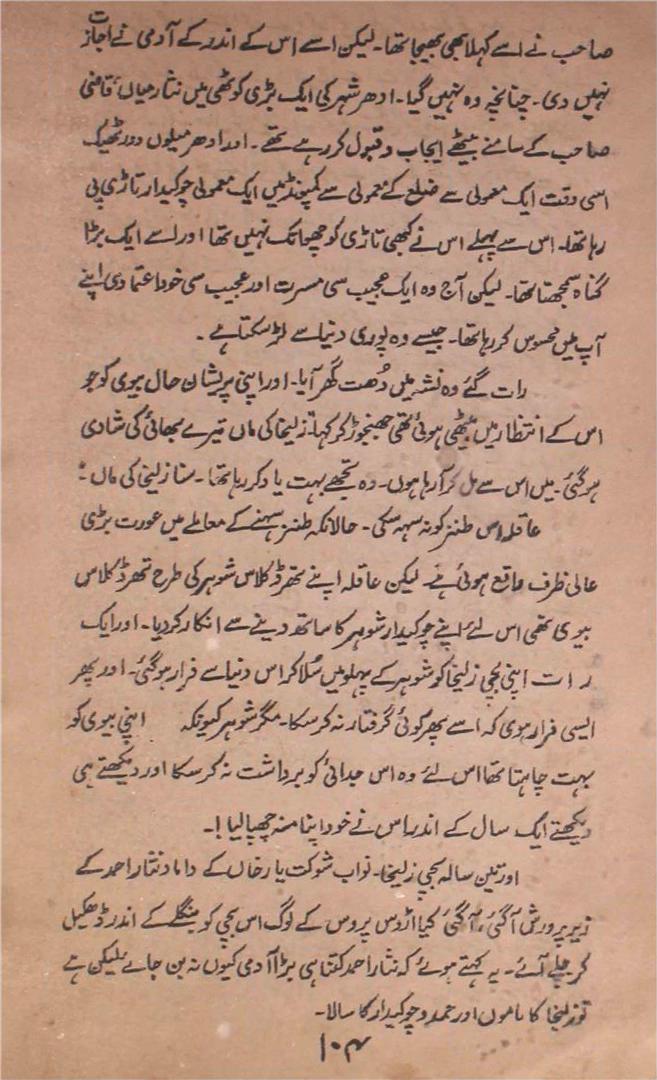 صاحب نے اسے کہلا بھی بھیجا تھا۔ لیکن اسے اس کے اندر کے آدمی نے اجازت
نہیں دی۔ چنانچہ وہ نہیں گیا۔ ادھر شہر کی ایک بڑی کوٹھی میں نثار میاں، قاضی
صاحب کے سامنے بیٹھے ایجاب و قبول کر رہے تھے۔ اور ادھر میلوں دور ٹھیک
اسی وقت ایک معمولی سے ضلع کے معمولی سے کمپونڈ میں ایک معمولی چوکیدار تاڑی پی
رہا تھا۔ اس سے پہلے اس نے کبھی تاڑی کو چھوا تک نہیں تھا اور اسے ایک بڑا
گناہ سمجھتا تھا۔ لیکن آج وہ ایک عجیب سی مسرت اور عجیب سی خود اعتمادی اپنے
آپ میں محسوس کر رہا تھا۔ جیسے وہ پوری دنیا سے لڑ سکتا ہے۔
رات گئے وہ نشہ میں دُھت گھر آیا۔ اور اپنی پریشان حال بیوی کو جو
اس کے انتظار میں بیٹھی ہوئی تھی جھنجوڑ کر کہا۔ زلیخا کی ماں تیرے بھائی کی شادی
ہوگئی۔ میں اس سے مل کر آ رہا ہوں۔ وہ تجھے بہت یاد کر رہا تھا۔ سنا زلیخی کی ماں :
عاقلہ اس طنز کو نہ سہہ سکی۔ حالانکہ طنز سہنے کے معاملے میں عورت بڑی
عالی ظرف واقع ہوئی ہے۔ لیکن عاقلہ اپنے تھرڈ کلاس شوہر کی طرح تھرڈ کلاس
بیوی تھی اس لئے اپنے چوکیدار شوہر کا ساتھ دینے سے انکار کر دیا۔ اور ایک
رات اپنی بچی زلیخا کو شوہر کے پہلو میں سُلا کر اس دنیا سے فرار ہوگئی۔ اور پھر
ایسی فرار ہوی کہ اسے پھر کوئی گرفتار نہ کر سکا۔ مگر شوہر کیونکہ اپنی بیوی کو
بہت چاہتا تھا اس لئے وہ اس جدائی کو برداشت نہ کر سکا اور دیکھتے ہی
دیکھتے ایک سال کے اندر اس نے خود اپنا منہ چھپا لیا !۔
اور تین سالہ بچی زلیخا۔ نواب شوکت یار خاں کے داماد نثار احمد کے
زیر پرورش آگئی، آگئی کیا اڑوس پروس کے لوگ اس بچی کو بنگلے کے اندر ڈھکیل
کر چلے آئے۔ یہ کہتے ہوئے کہ نثار احمد کتنا ہی بڑا آدمی کیوں نہ بن جائے لیکن ہے
تو زلیخا کا ماموں اور حمدو چوکیدار کا سالا۔
۱۰۴